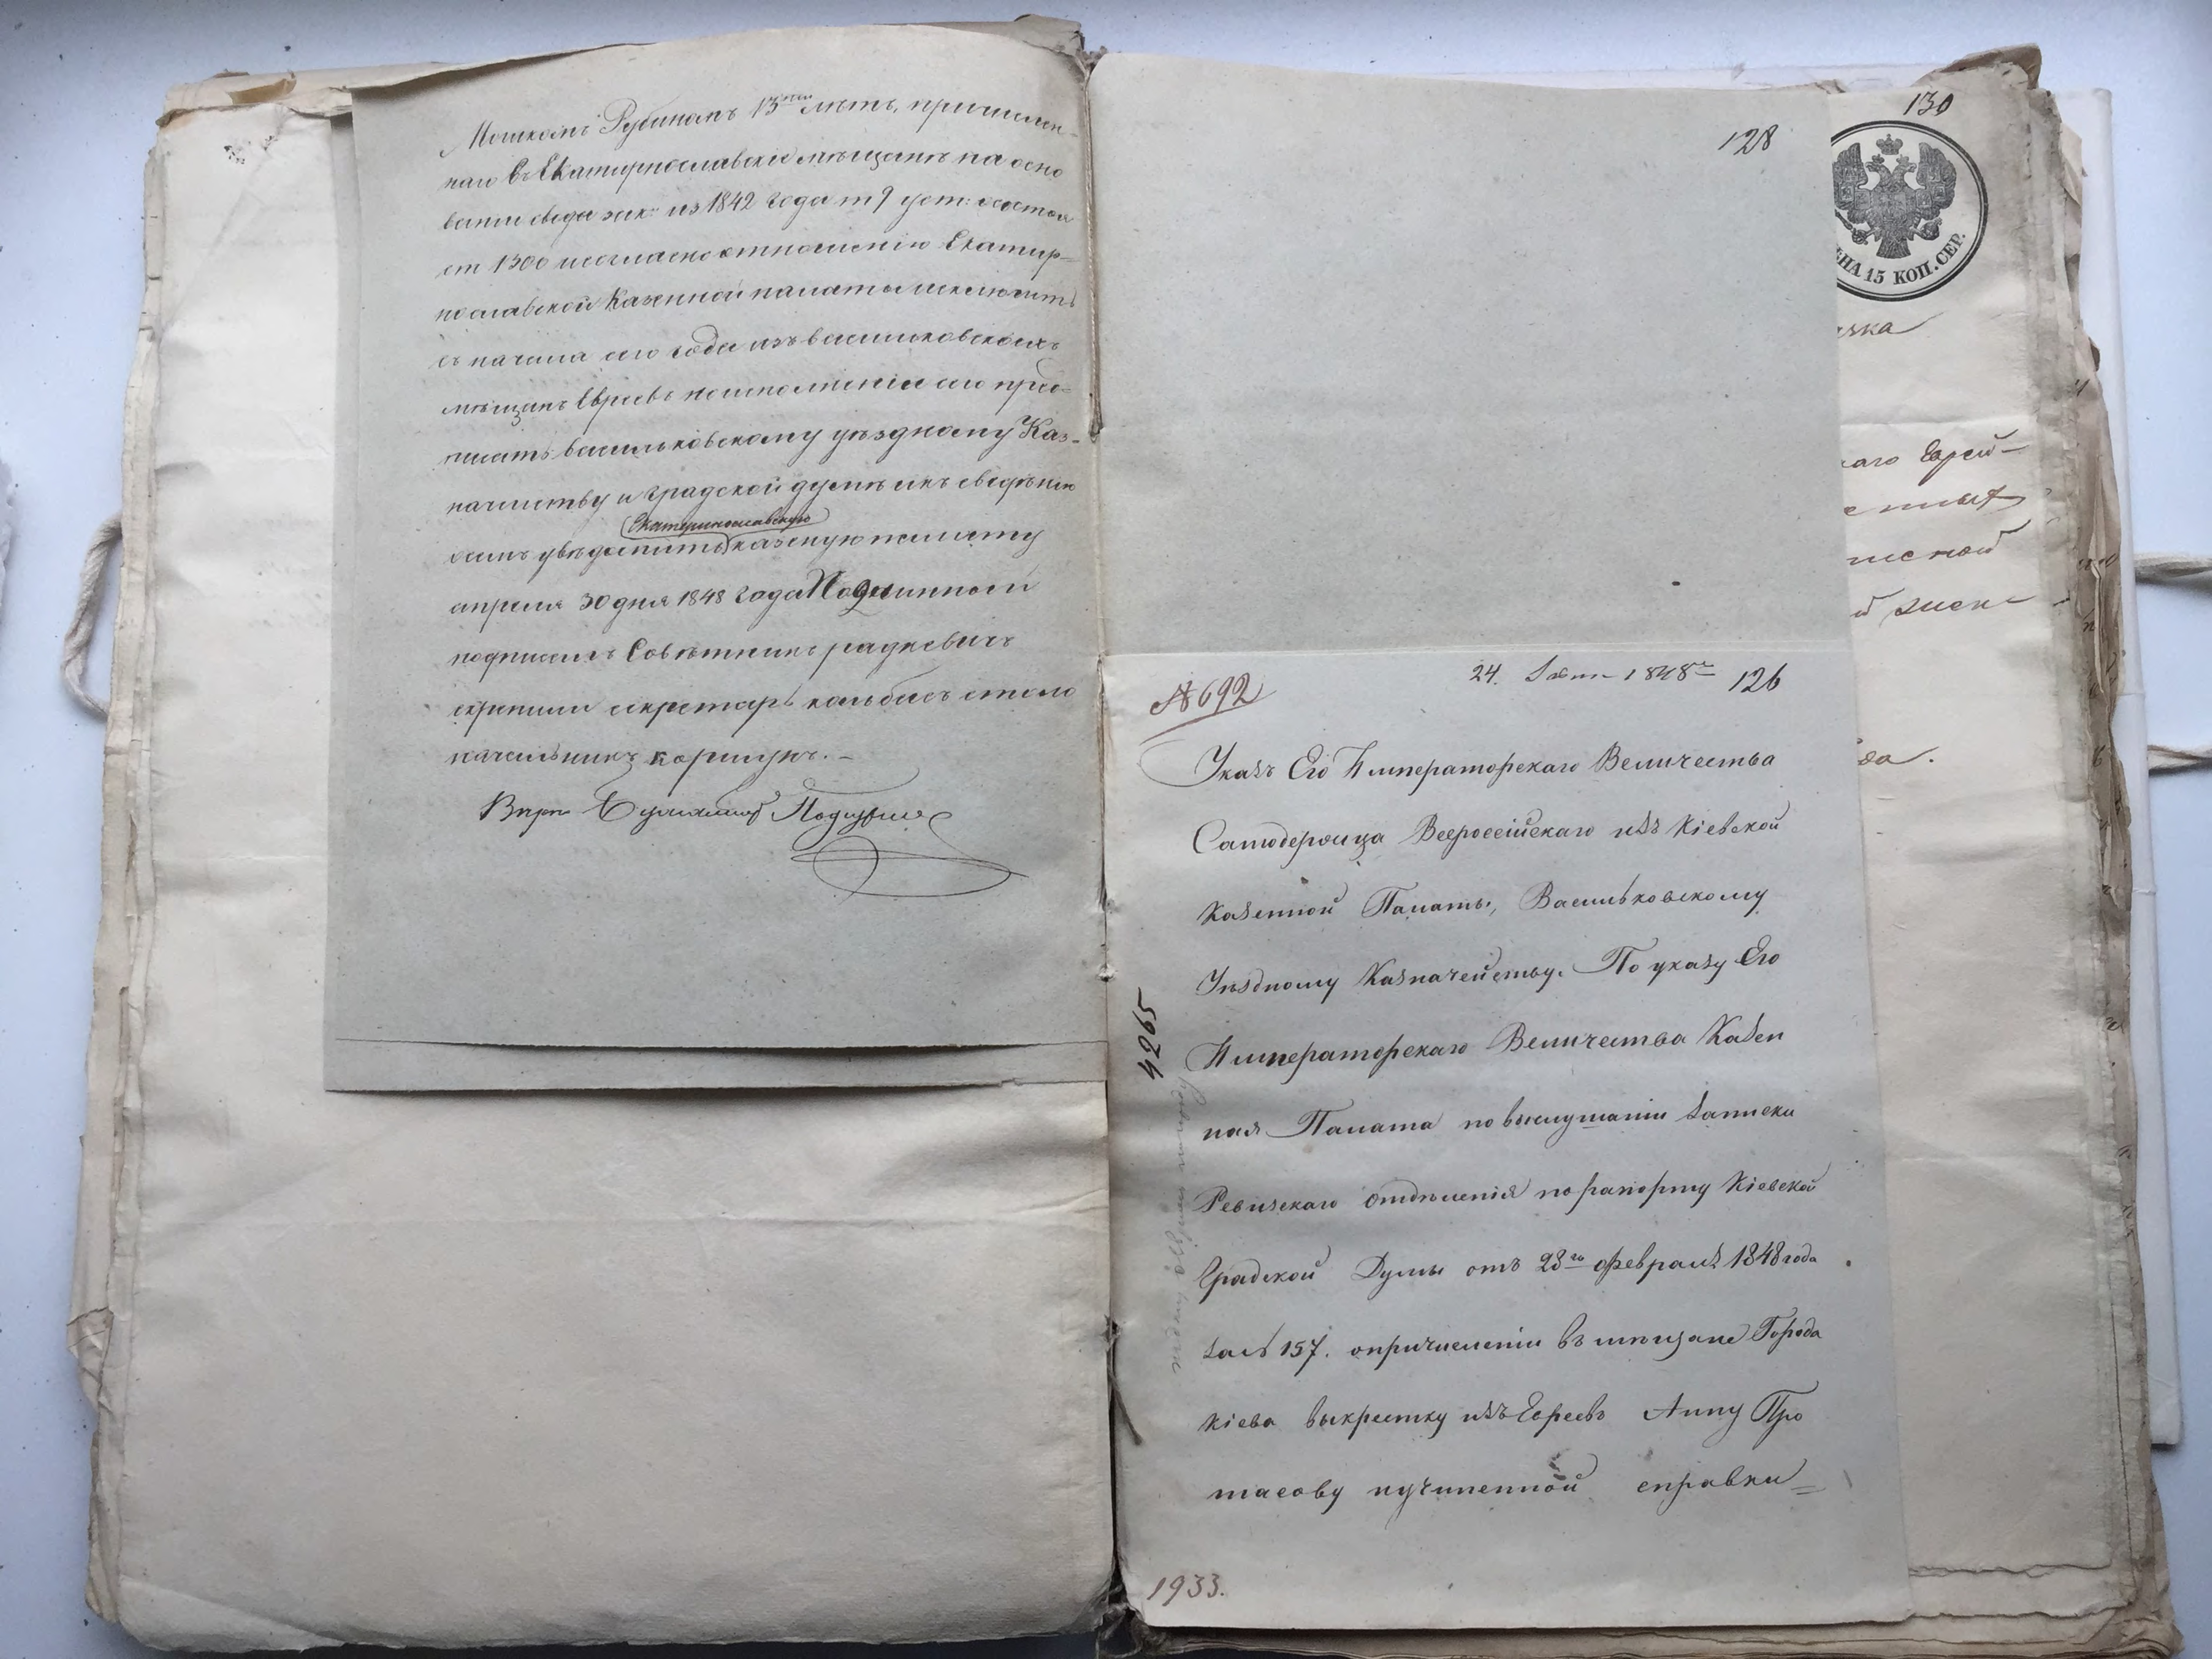 Мошкомъ Рубинамъ 13 лѣтъ, причислен-
наго въ Екатеринославскіе мѣщане на осно
ваніи свода зак: изъ 1842 года т 9 уст: о состоя
ст 1300 и согласно отношенію Екатир-
нославской Казенной палаты исключить
съ начала сего года изъ васильковскихъ
мѣщанъ Евреевъ по исполненіи сего пред-
писать васильковскому уѣздному Каз-
начейству и градской думѣ а къ свѣденію
Екатеринославскую
симъ увѣдомить казеную палату
апреля 30 дня 1848 года Подлинной
подписалъ Совѣтникъ радкевичъ
скрепили секретарь кольбасъ столо
начальникъ коршунъ.-
Вѣрно
128
130
ЦЕНА 15 КОП. СЕР.
аго Еврей-
да.
№692
24. 1848 126
Указъ Его Императорскаго Величества
Самодержца Всероссійскаго изъ Кіевской
Казенной Палаты, Васильковскому
Уѣздному Казначейству. По указу Его
Императорскаго Величества Казен
ная Палата по выслушаніи записки
Ревизскаго отдѣленія по рапорту Кіевской
Градской Думы отъ 28го февраля 1848 года
за № 157. о причисленіи въ мѣщане Города
Кіева выкрестку изъ Евреевъ Анну Про
тасову и учиненной справки=
4265
1933.